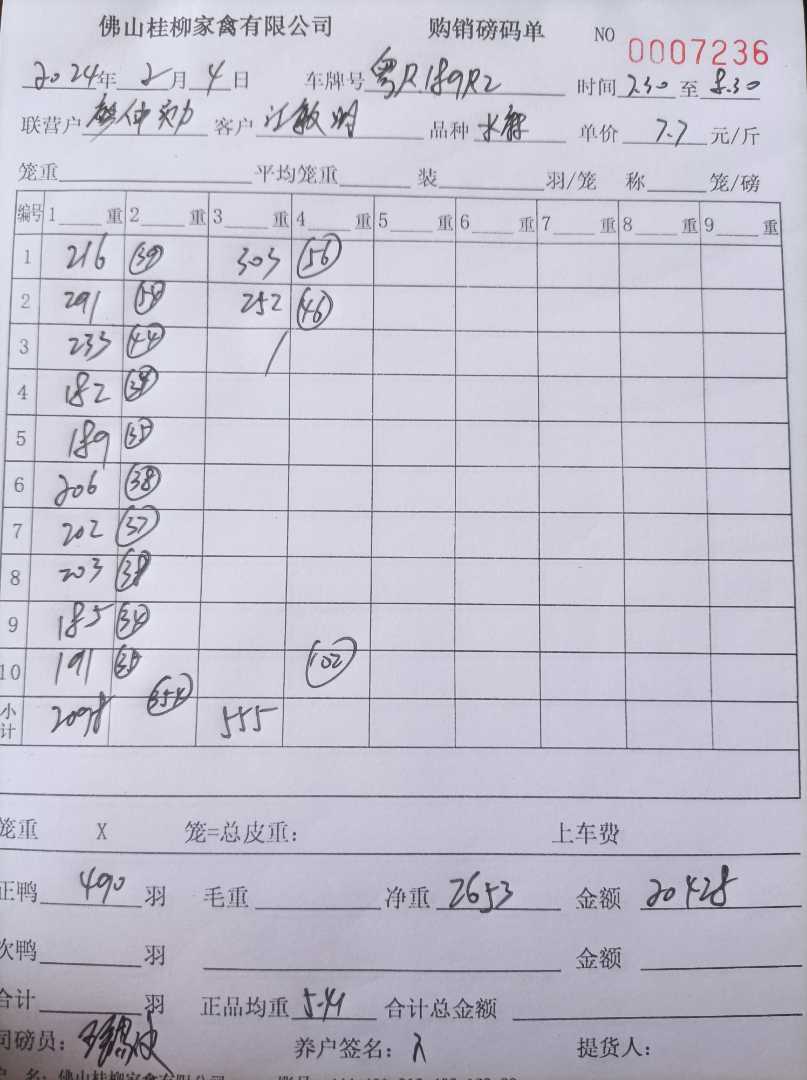 佛山桂柳家禽有限公司 购销磅码单 NO 0007236
2024年 2月 4日 车牌号 粤R189R2 时间 7.30 至 8.30
联营户 客户 江敏明 品种 水鸭 单价 7.7 元/斤
笼重 平均笼重 装 羽/笼 称 笼/磅
编号 1 重 2 重 3 重 4 重 5 重 6 重 7 重 8 重 9 重
1 216 39 303 56
2 291 252 46
3 233 44 /
4 182
5 189 35
6 206 38
7 202 37
8 203 38
9 185 34
10 191 35 102
354
小计 2098 555
笼重 X 笼=总皮重: 上车费
正鸭 490 羽 毛重 净重 2653 金额 20428
次鸭 羽 金额
合计 羽 正品均重 5.41 合计总金额
司磅员: 养户签名: 提货人:
户 名: 佛山桂柳家禽有限公司